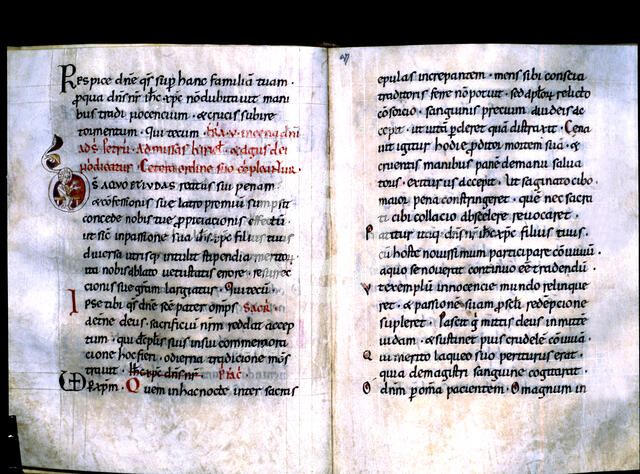 Respice dne qs sup hanc familia tuam.
p qua dns nr ihc xpc no dubitauit mani
bus tradi nocencium. & crucis subire
tormentum. Qui tecum
Ds a quo & iudas reatus sui penam.
& confessionis sue latro premiu sumpsit
concede nobis tue ppiciacionis effectu.
ut sic in passione sua ihc xpc filius tuus
diuersa utrisq intulit stipendia meritor
ita nobis ablato uetustatis errore. resurrec
cionis sue gram largiatur. Qui tecu.
Ipse tibi qs dne sce pater omps Sacr.
aeterne deus. sacrificiu nrm reddat accep
tum. qui discipulis suis in sui commemora
cione hoc fieri. odierna tradicione mons
trauit. ihc xpc dns nr. Pfac.
p xpm. Quem in hac nocte inter sacras
epulas increpantem. mens sibi conscia
traditoris ferre no potuit. sed aplor relicto
consorcio. sanguinis precium a iudeis ac
cepit. ut uita pderet qua distraxit. Cena
uit igitur hodie pditor mortem sua. &
cruentis manibus pane de manu salua
toris. exiturus accepit. Ut saginato cibo
maior pena constringeret. que nec sacra
ti cibi collacio a scelere reuocaret.
Patitur itaq dns nr ihc xpc filius tuus.
cu hoste nouissimum participare conuiuiu.
a quo se nouerat continuo ee tradendu.
Ut exemplu innocencie mundo relinque
ret. & passione sua p scli redepcione
supleret. Pascit g mitis deus inmite
iudam. & sustinet pius crudele conuiua.
Qui merito laqueo suo periturus erat.
quia de magistri sanguine cogitarat.
O dnm p omia pacientem. O magnum in